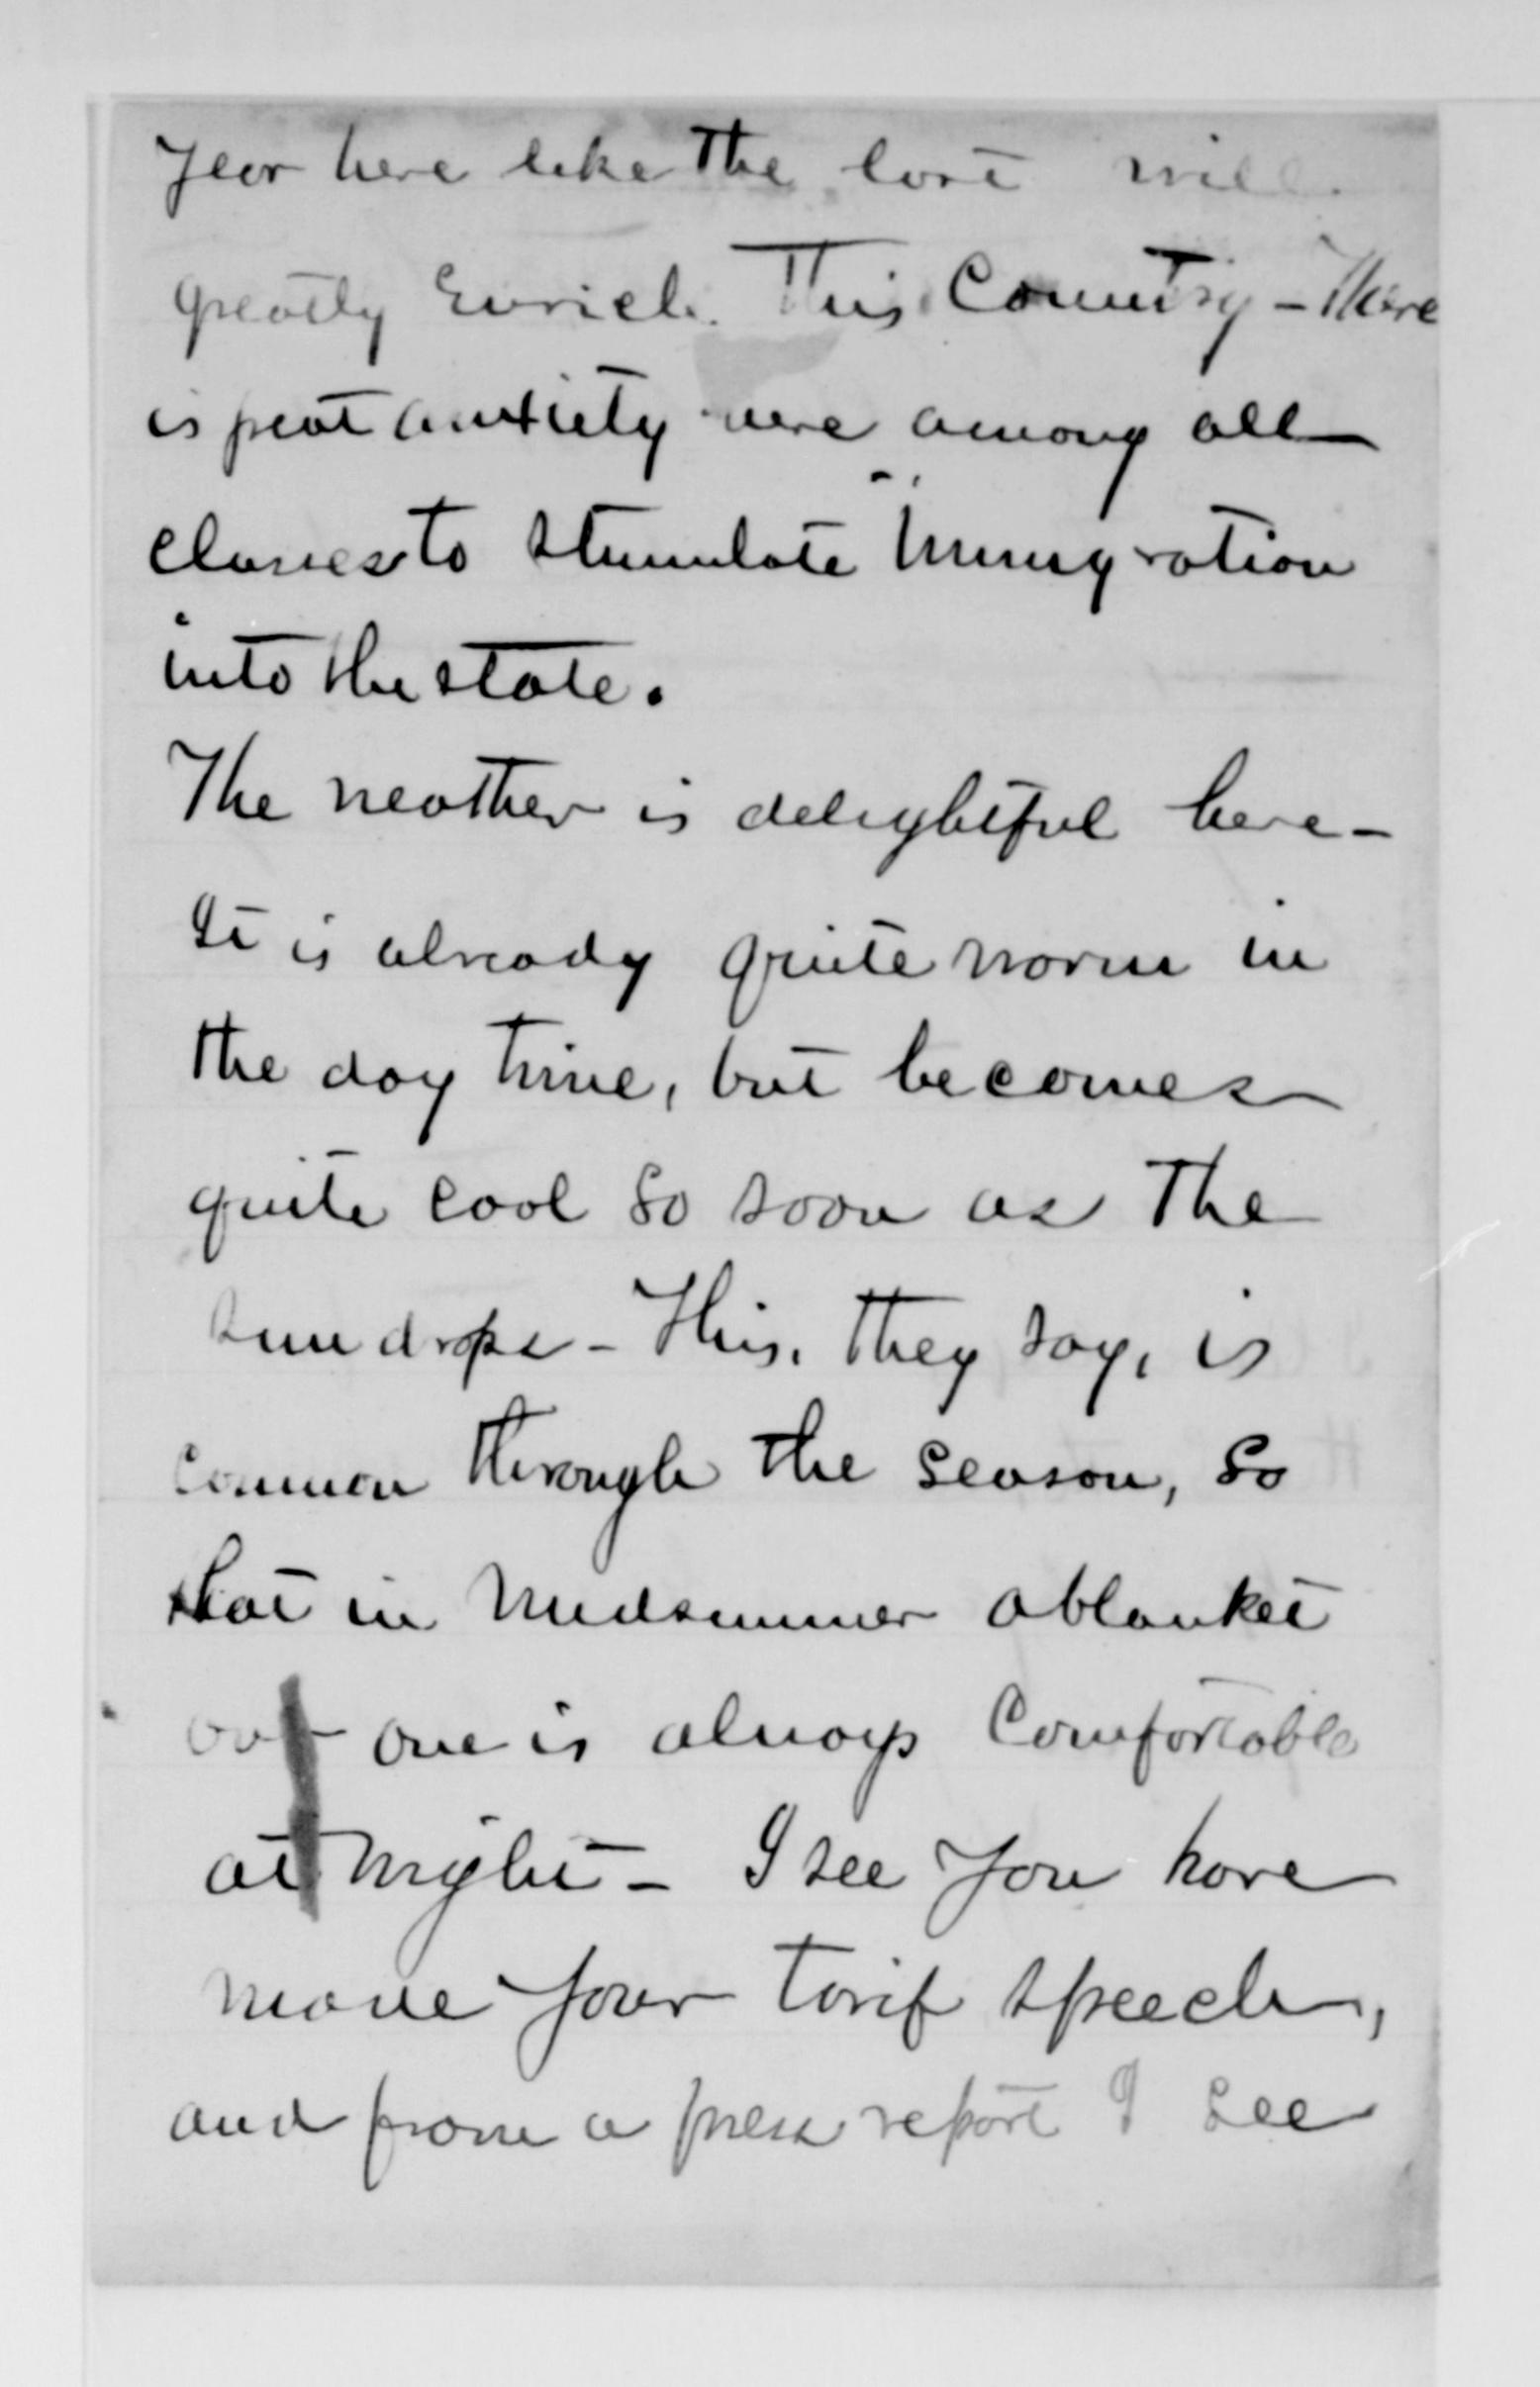 Year here like the last will
greatly Enrich This Country - There
is great anxiety here among all
classes to stimulate Immigration
into the state.
The weather is delightful here -
It is already quite warm in
the day time, but becomes
quite cool so soon as the
sun drops - This, they say, is
common through the season, so
that in Midsummer a blanket
one is always Comfortable
at night - I see you have
made your tarif speech,
and from a press report I see